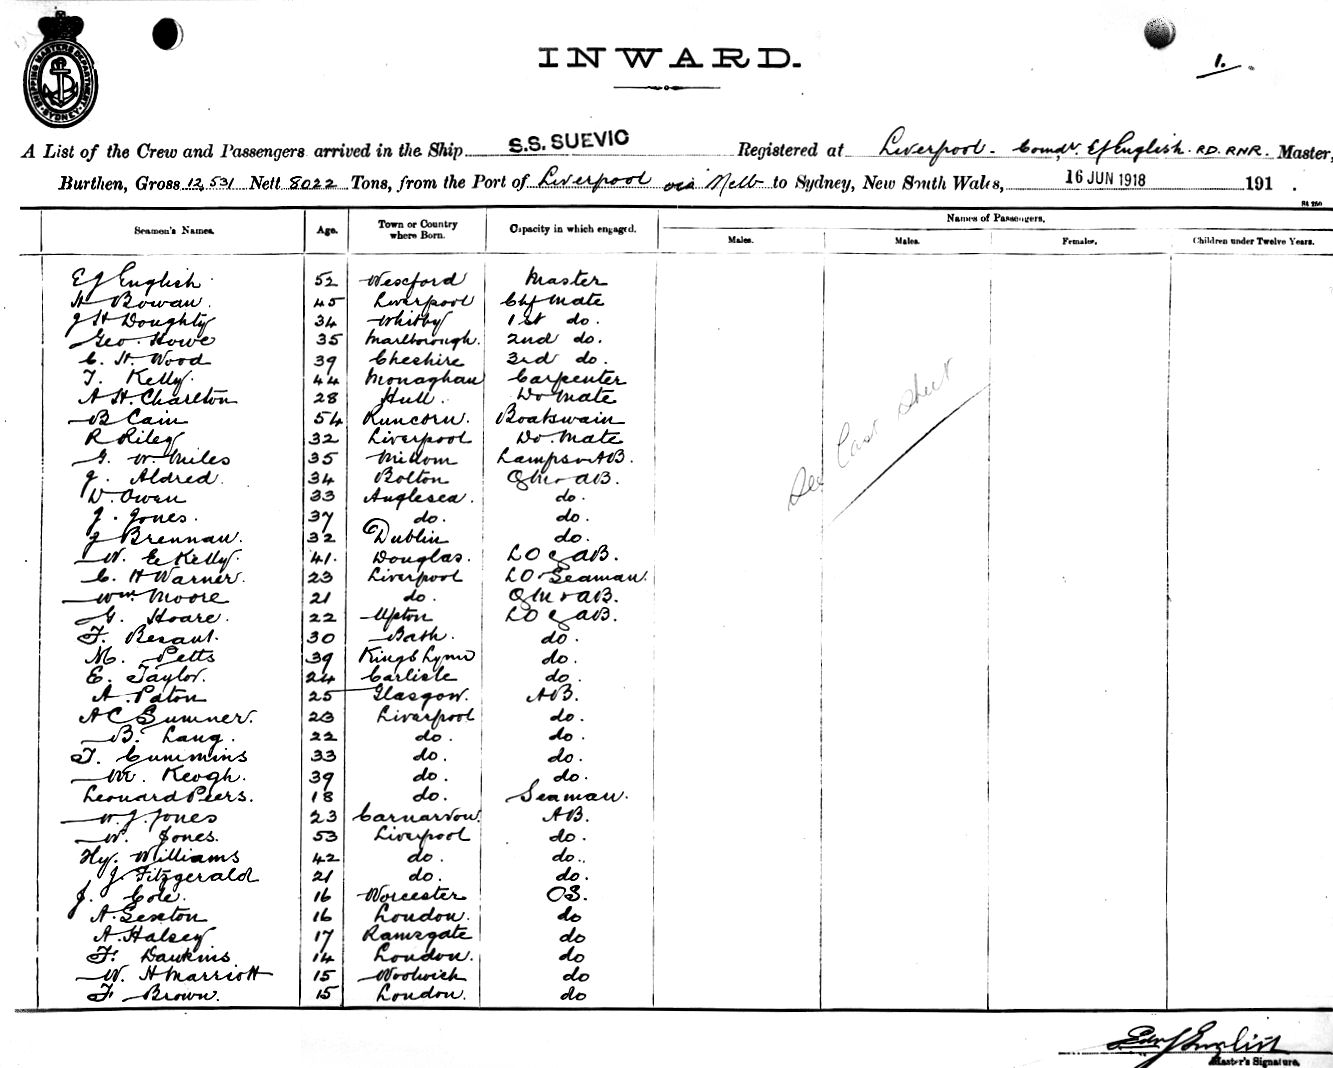 SHIPPING MASTERS DEPARTMENT SYDNEY
INWARD.
1.
A List of the Crew and Passengers arrived in the Ship S.S. SUEVIC Registered at Liverpool. Comdr EJ English. RD. RNR. Master,
Burthen, Gross 12,531 Nett 8022 Tons, from the Port of Liverpool via Melb to Sydney, New South Wales, 16 JUN 1918 191 .
Seamen's Names. Age. Town or Country where Born. Capacity in which engaged. Names of Passengers.
Males. Males. Females. Children under Twelve Years.
EJ English 52 Wexford Master
H Bowan. 45 Liverpool Chf Mate
J H Doughty 34 Whitby 1st do.
Geo Howe 35 Marlborough. 2nd do.
C. H. Wood 39 Cheshire 3rd do.
T. Kelly. 44 Monaghan Carpenter
A H. Charlton 28 Hull. Do Mate
B Cain 54 Runcorn. Boatswain
R Riley 32 Liverpool Do. Mate
G. W Miles 35 Millom Lamps & AB.
J. Aldred. 34 Bolton QMr & AB.
W Owen 33 Anglesea. do.
J. Jones. 37 do. do.
J Brennan. 32 Dublin do.
W. E Kelly. 41. Douglas. LO & AB.
C. H Warner. 23 Liverpool LO & Seaman.
Wm Moore 21 do. QMr & AB.
G. Hoare. 22 Upton LO & AB.
F. Besant. 30 Bath. do.
M. Petts 39 Kings Lynn do.
E. Taylor. 24 Carlisle do.
A. Paton 25 Glasgow. AB.
AC Sumner. 23 Liverpool do.
B. Lang. 22 do. do.
T. Cummins 33 do. do.
M. Keogh. 39 do. do.
Leonard Peers. 18 do. Seaman.
W. J. Jones 23 Carnarvon. AB.
W. Jones. 53 Liverpool do.
Hy. Williams 42 do. do.
J Fitzgerald 21 do. do.
J. Cole. 16 Worcester OS.
A. Sexton 16 London. do
A. Halsey. 17 Ramsgate do
F. Dawkins 14 London. do
W. H Marriott 15 Woolwich do
F Brown. 15 London. do
See Last Sheet
Edw J English
Master's Signature.